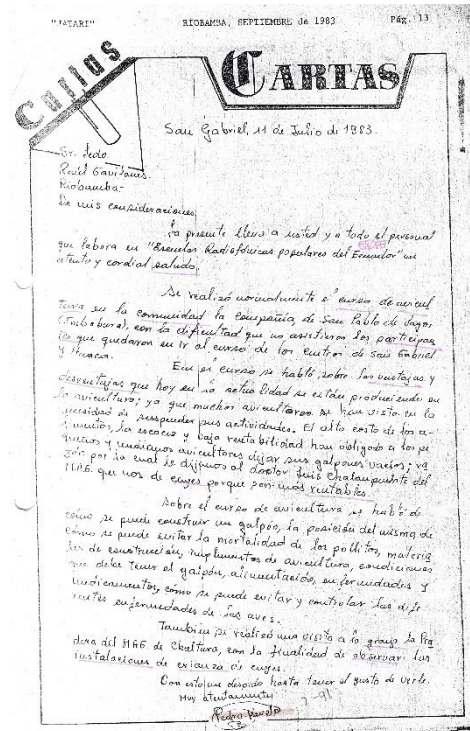 "JATARI" RIOBAMBA, SEPTIEMBRE de 1983 Pág. 13
Cartas
CARTAS
San Gabriel, 11 de Julio de 1983.
Sr. Lcdo
Raúl Gavilanes.
Riobamba-
De mis consideraciones.
La presente lleva a usted y a todo el personal
que labora en "Escuelas Radiofónicas populares del Ecuador" un
atento y cordial saludo.
Se realizó normalmente el curso de avicul
tura en la comunidad la compañia de San Pablo de Lago,
(Imbabura), con la dificultad que no asistieron los participan
tes que quedaron en ir al curso de los centros de San Gabriel
y Huaca.
En el curso se habló, sobre las ventajas y
desventajas que hoy en la actualidad se están produciendo en
la avicultura; ya que muchos avicultores se han visto en la
necesidad de suspender sus actividades. El alto costo de los a-
limentos, la escases y baja rentabilidad han obligado a los pe
queños y medianos avicultores dejar sus galpones vacios; ra
zón por la cual le dijimos al doctor Luis Chalampuente del
MAG. que nos de cuyes porque son más rentables.
Sobre el curso de avicultura se habló de
cómo se puede construir un galpón, la posición del mismo, de
cómo se puede evitar la mortalidad de los pollitos, materia
les de construcción, implementos de avicultura, condiciones
que debe tener el galpón, alimentación, enfermedades y
medicamentos, cómo se puede evitar y controlar las dife
rentes enfermedades de las aves.
También se realizó una visita a la granja la Pra
dera del MAG de Chaltura, con la finalidad de observar las
instalaciones de crianza de cuyes.
Con esto me despido hasta tener el gusto de verle.
Muy atentamente
Pedro